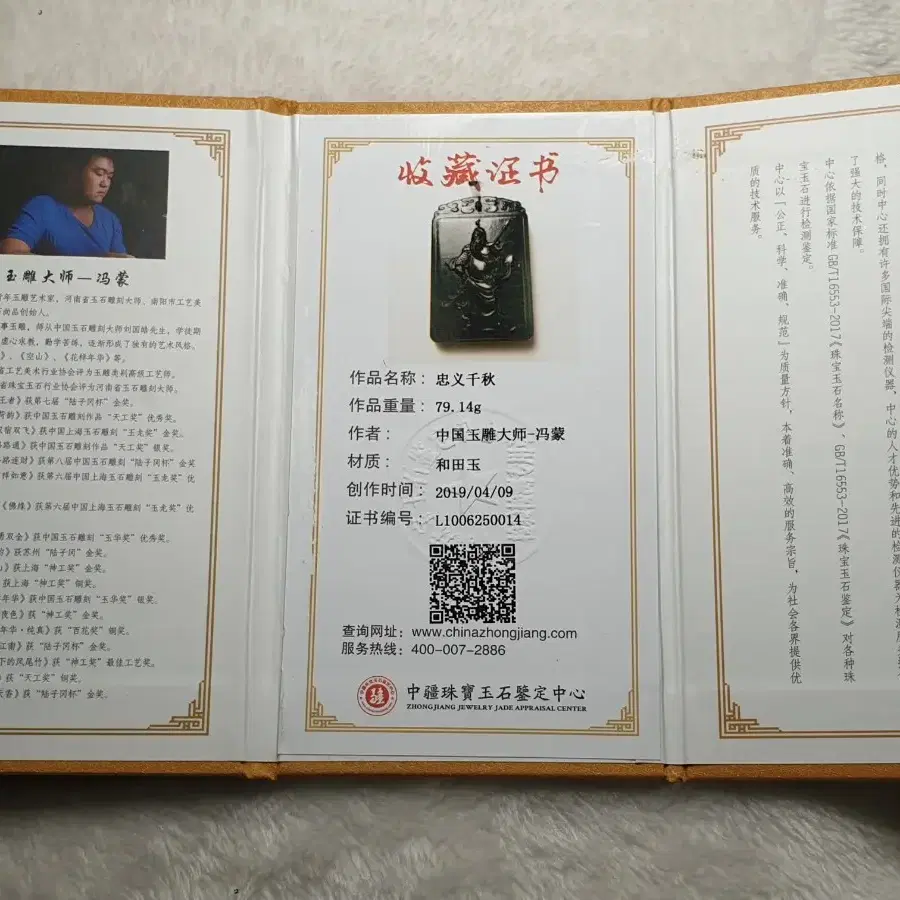 玉雕大师—冯蒙
青年玉雕艺术家，河南省玉石雕刻大师、南阳市工艺美
尚品创始人。
事玉雕，师从中国玉石雕刻大师刘国皓先生，学徒期
虚心求教，勤学苦练，逐渐形成了独有的艺术风格。
》、《空山》、《花样年华》等。
省工艺美术行业协会评为玉雕类别高级工艺师。
省珠宝玉石行业协会评为河南省玉石雕刻大师。
王者》获第七届“陆子冈杯”金奖。
荷韵》获中国玉石雕刻作品“天工奖”优秀奖。
宿双飞》获中国上海玉石雕刻“玉龙奖”金奖。
路通》获中国玉石雕刻作品“天工奖”银奖。
路连财》获第八届中国玉石雕刻“陆子冈杯”金奖
祥如意》获第六届中国上海玉石雕刻“玉龙奖”优
《佛缘》获第六届中国上海玉石雕刻“玉龙奖”优
双金》获中国玉石雕刻“玉华奖”优秀奖。
》获苏州“陆子冈”金奖。
》获上海“神工奖”金奖。
获上海“神工奖”铜奖。
年华》获中国玉石雕刻“玉华奖”银奖。
夜色》获“神工奖”金奖。
年华·纯真》获“百花奖”铜奖。
江南》获“陆子冈杯”金奖。
下的凤尾竹》获“神工奖”最佳工艺奖。
》获“天工奖”铜奖。
天香》获“陆子冈杯”金奖。
收藏证书
作品名称：忠义千秋
作品重量：79.14g
作者：中国玉雕大师-冯蒙
材质：和田玉
创作时间：2019/04/09
证书编号：L1006250014
查询网址：www.chinazhongjiang.com
服务热线：400-007-2886
中疆珠寶玉石鑒定中心
ZHONGJIANG JEWELRY JADE APPRAISAL CENTER
格，同时中心还拥有许多国际尖端的检测仪器，中心的人才优势和先进的检测仪器为检测质
了强大的技术保障。
中心依据国家标准 GB/T16553-2017《珠宝玉石名称》、GB/T16553-2017《珠宝玉石鉴定》对各种珠
宝玉石进行检测鉴定。
中心以「公正、科学、准确、规范」为质量方针，本着准确、高效的服务宗旨，为社会各界提供优
质的技术服务。